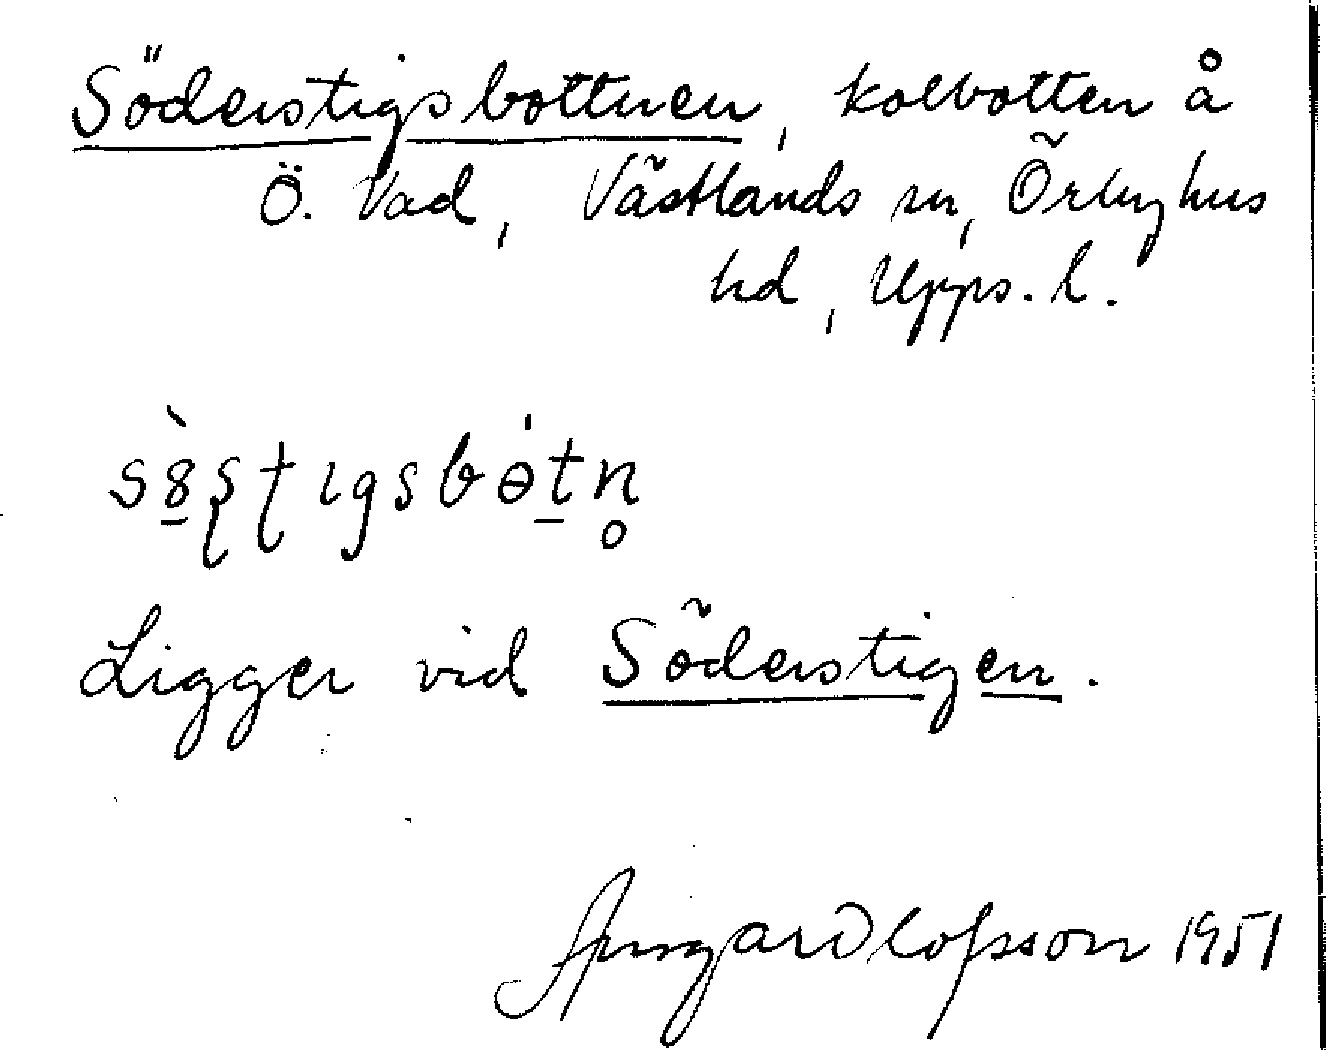 Söderstigsbottnen, kolbotten å
Ö. Vad, Västlands sn, Örbyhus
hd, Upps. l.
Ligger vid Söderstigen.
Olofsson 1951